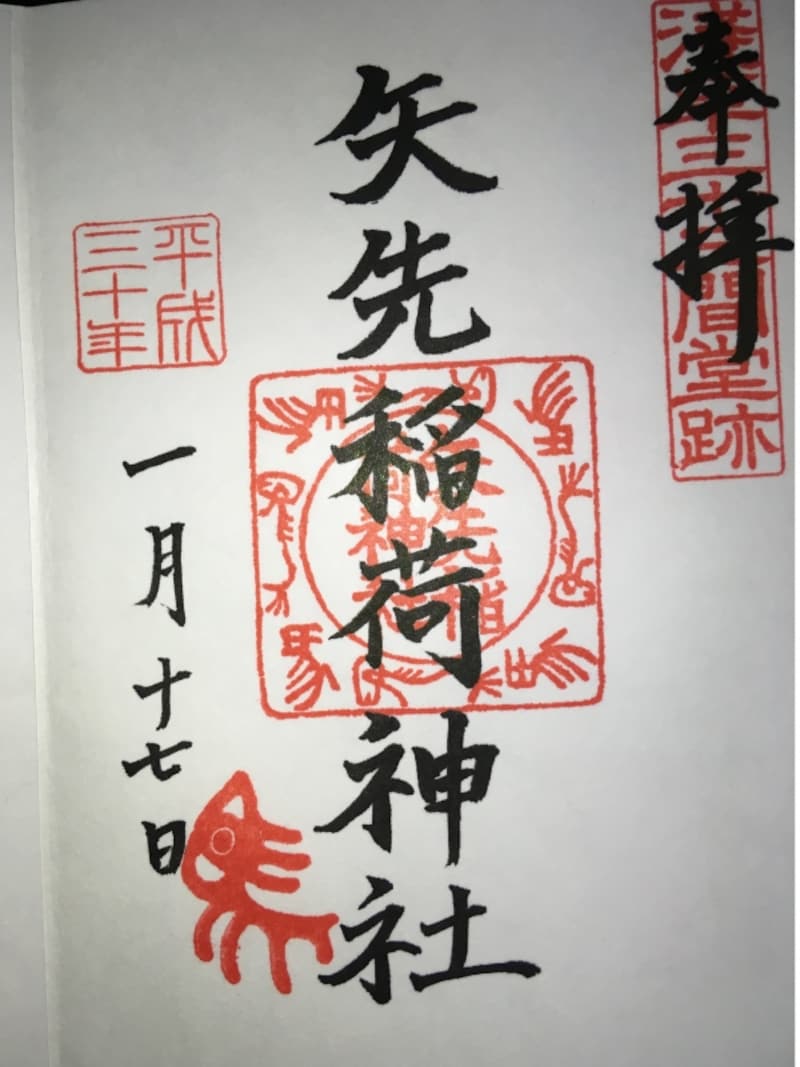 奉拝
浅草三十三間堂跡
矢先稲荷神社
矢先稲荷神社
平成
三十年
一月十七日
馬